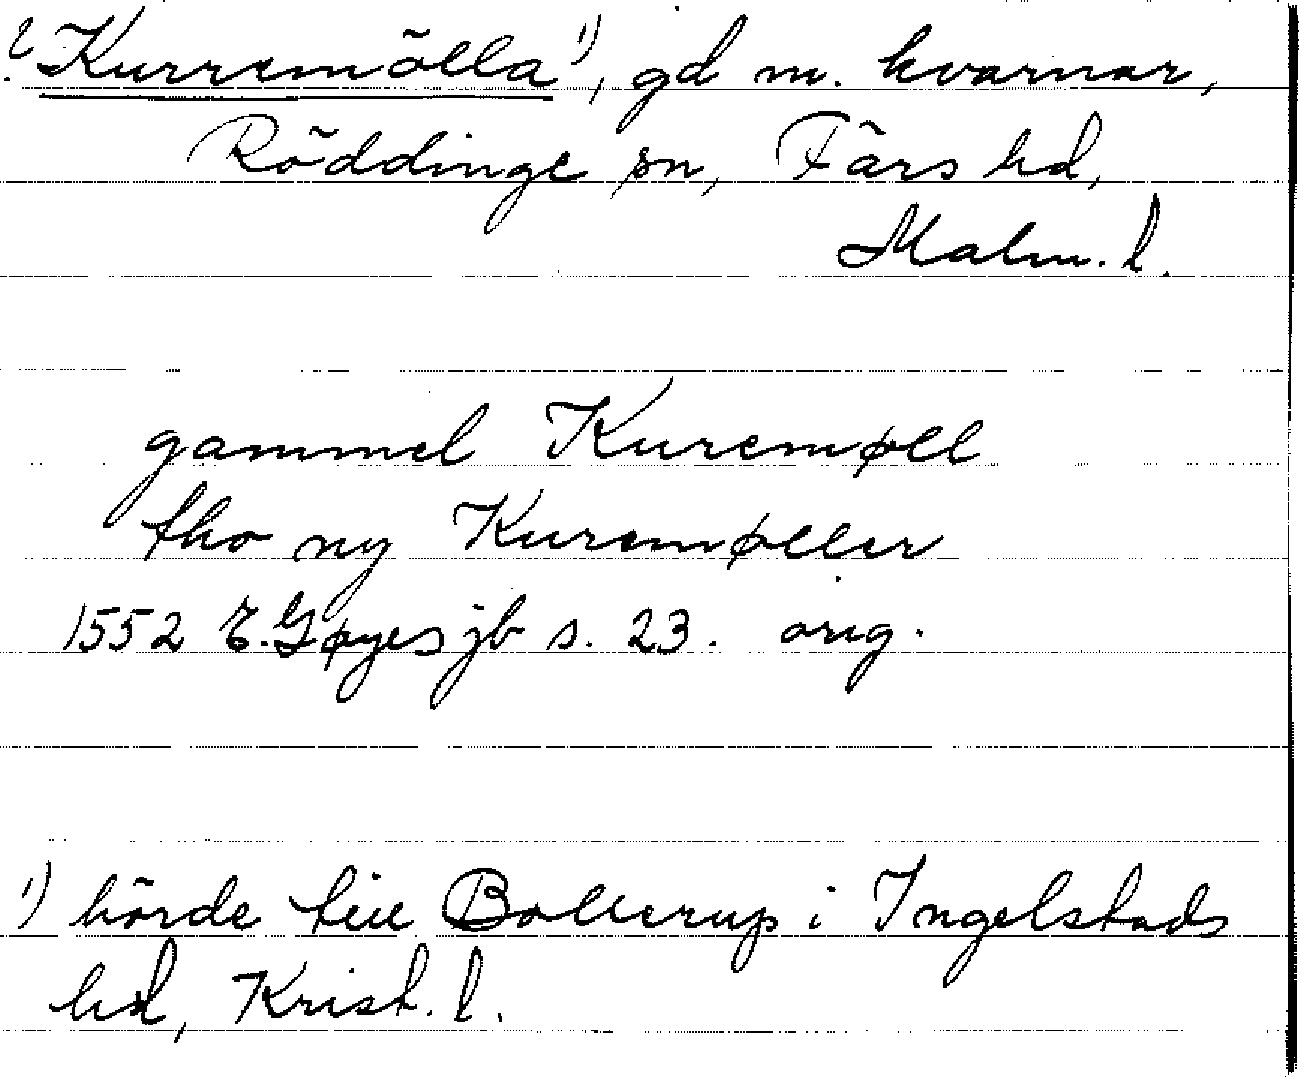 ? Kurremölla 1), gd m. kvarnar,
Röddinge sn, Färs hd,
Malm. l.
gammel Kuremøll
tho ny Kuremøller
1552 E. Gøyes jb s. 23. orig.
1) hörde till Bollerup i Ingelstads
hd, Krist. l.